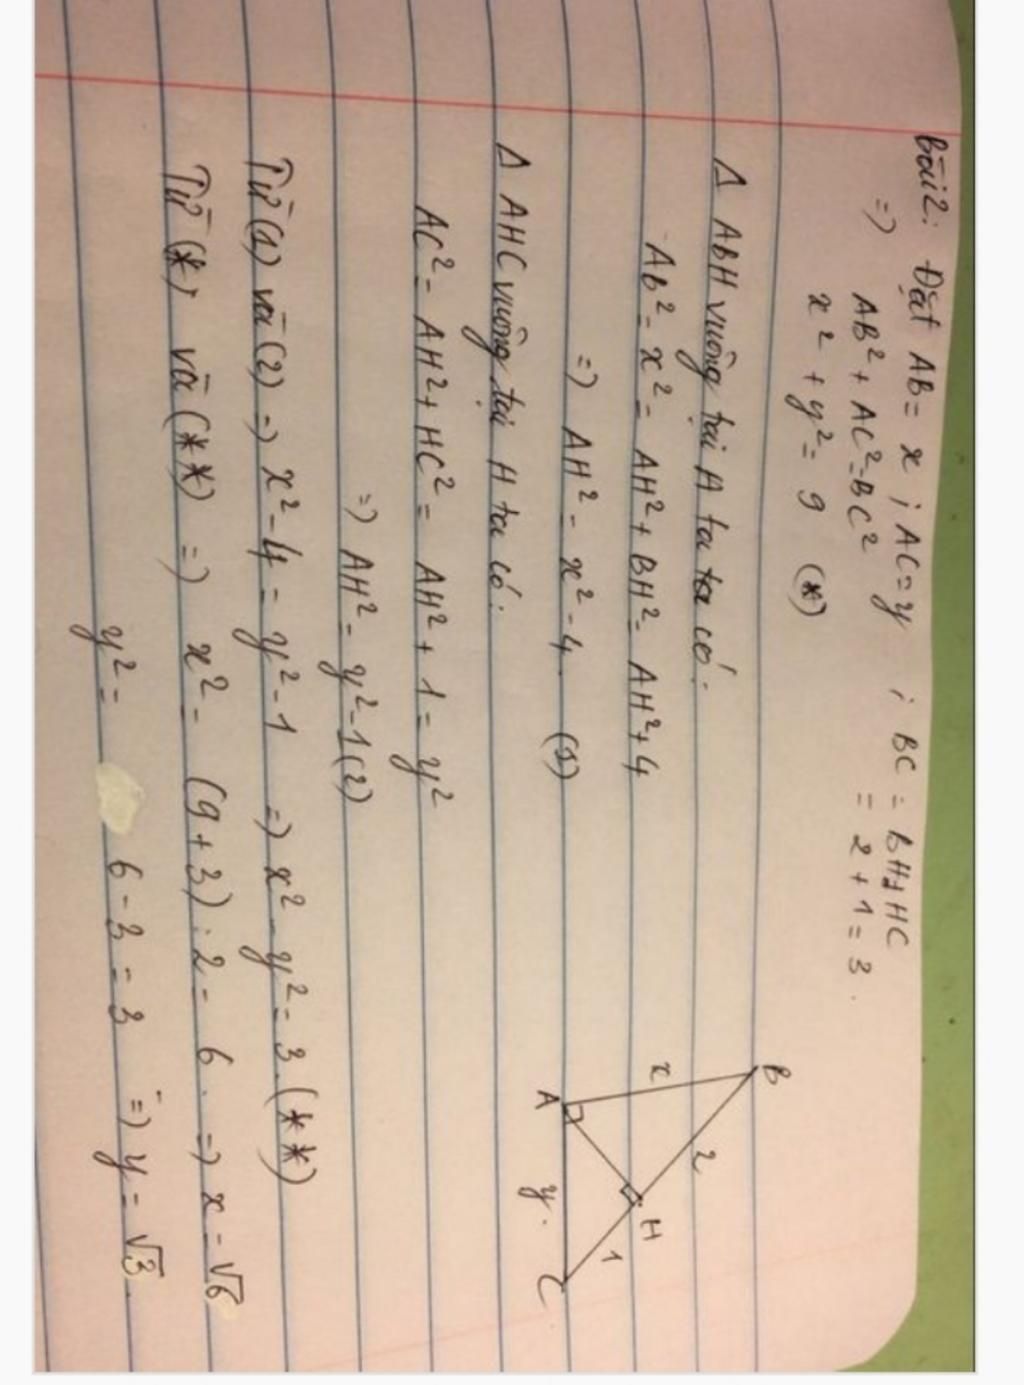 Bài 2: Đặt AB = x ; AC = y ; BC = BH + HC
=> AB² + AC² = BC² = 2 + 1 = 3.
x² + y² = 9 (*)
Δ ABH vuông tại A ta ta có:
AB² = x² = AH² + BH² = AH² + 4
=> AH² = x² - 4. (1)
Δ AHC vuông tại H ta có:
AC² = AH² + HC² = AH² + 1 = y²
=> AH² = y² - 1 (2)
Từ (1) và (2) => x² - 4 = y² - 1 => x² - y² = 3. (**)
Từ (*) và (**) => x² = (9 + 3) : 2 = 6. => x = √6
y² = 6 - 3 = 3 => y = √3.
B
x
2
A
H
y.
1
C